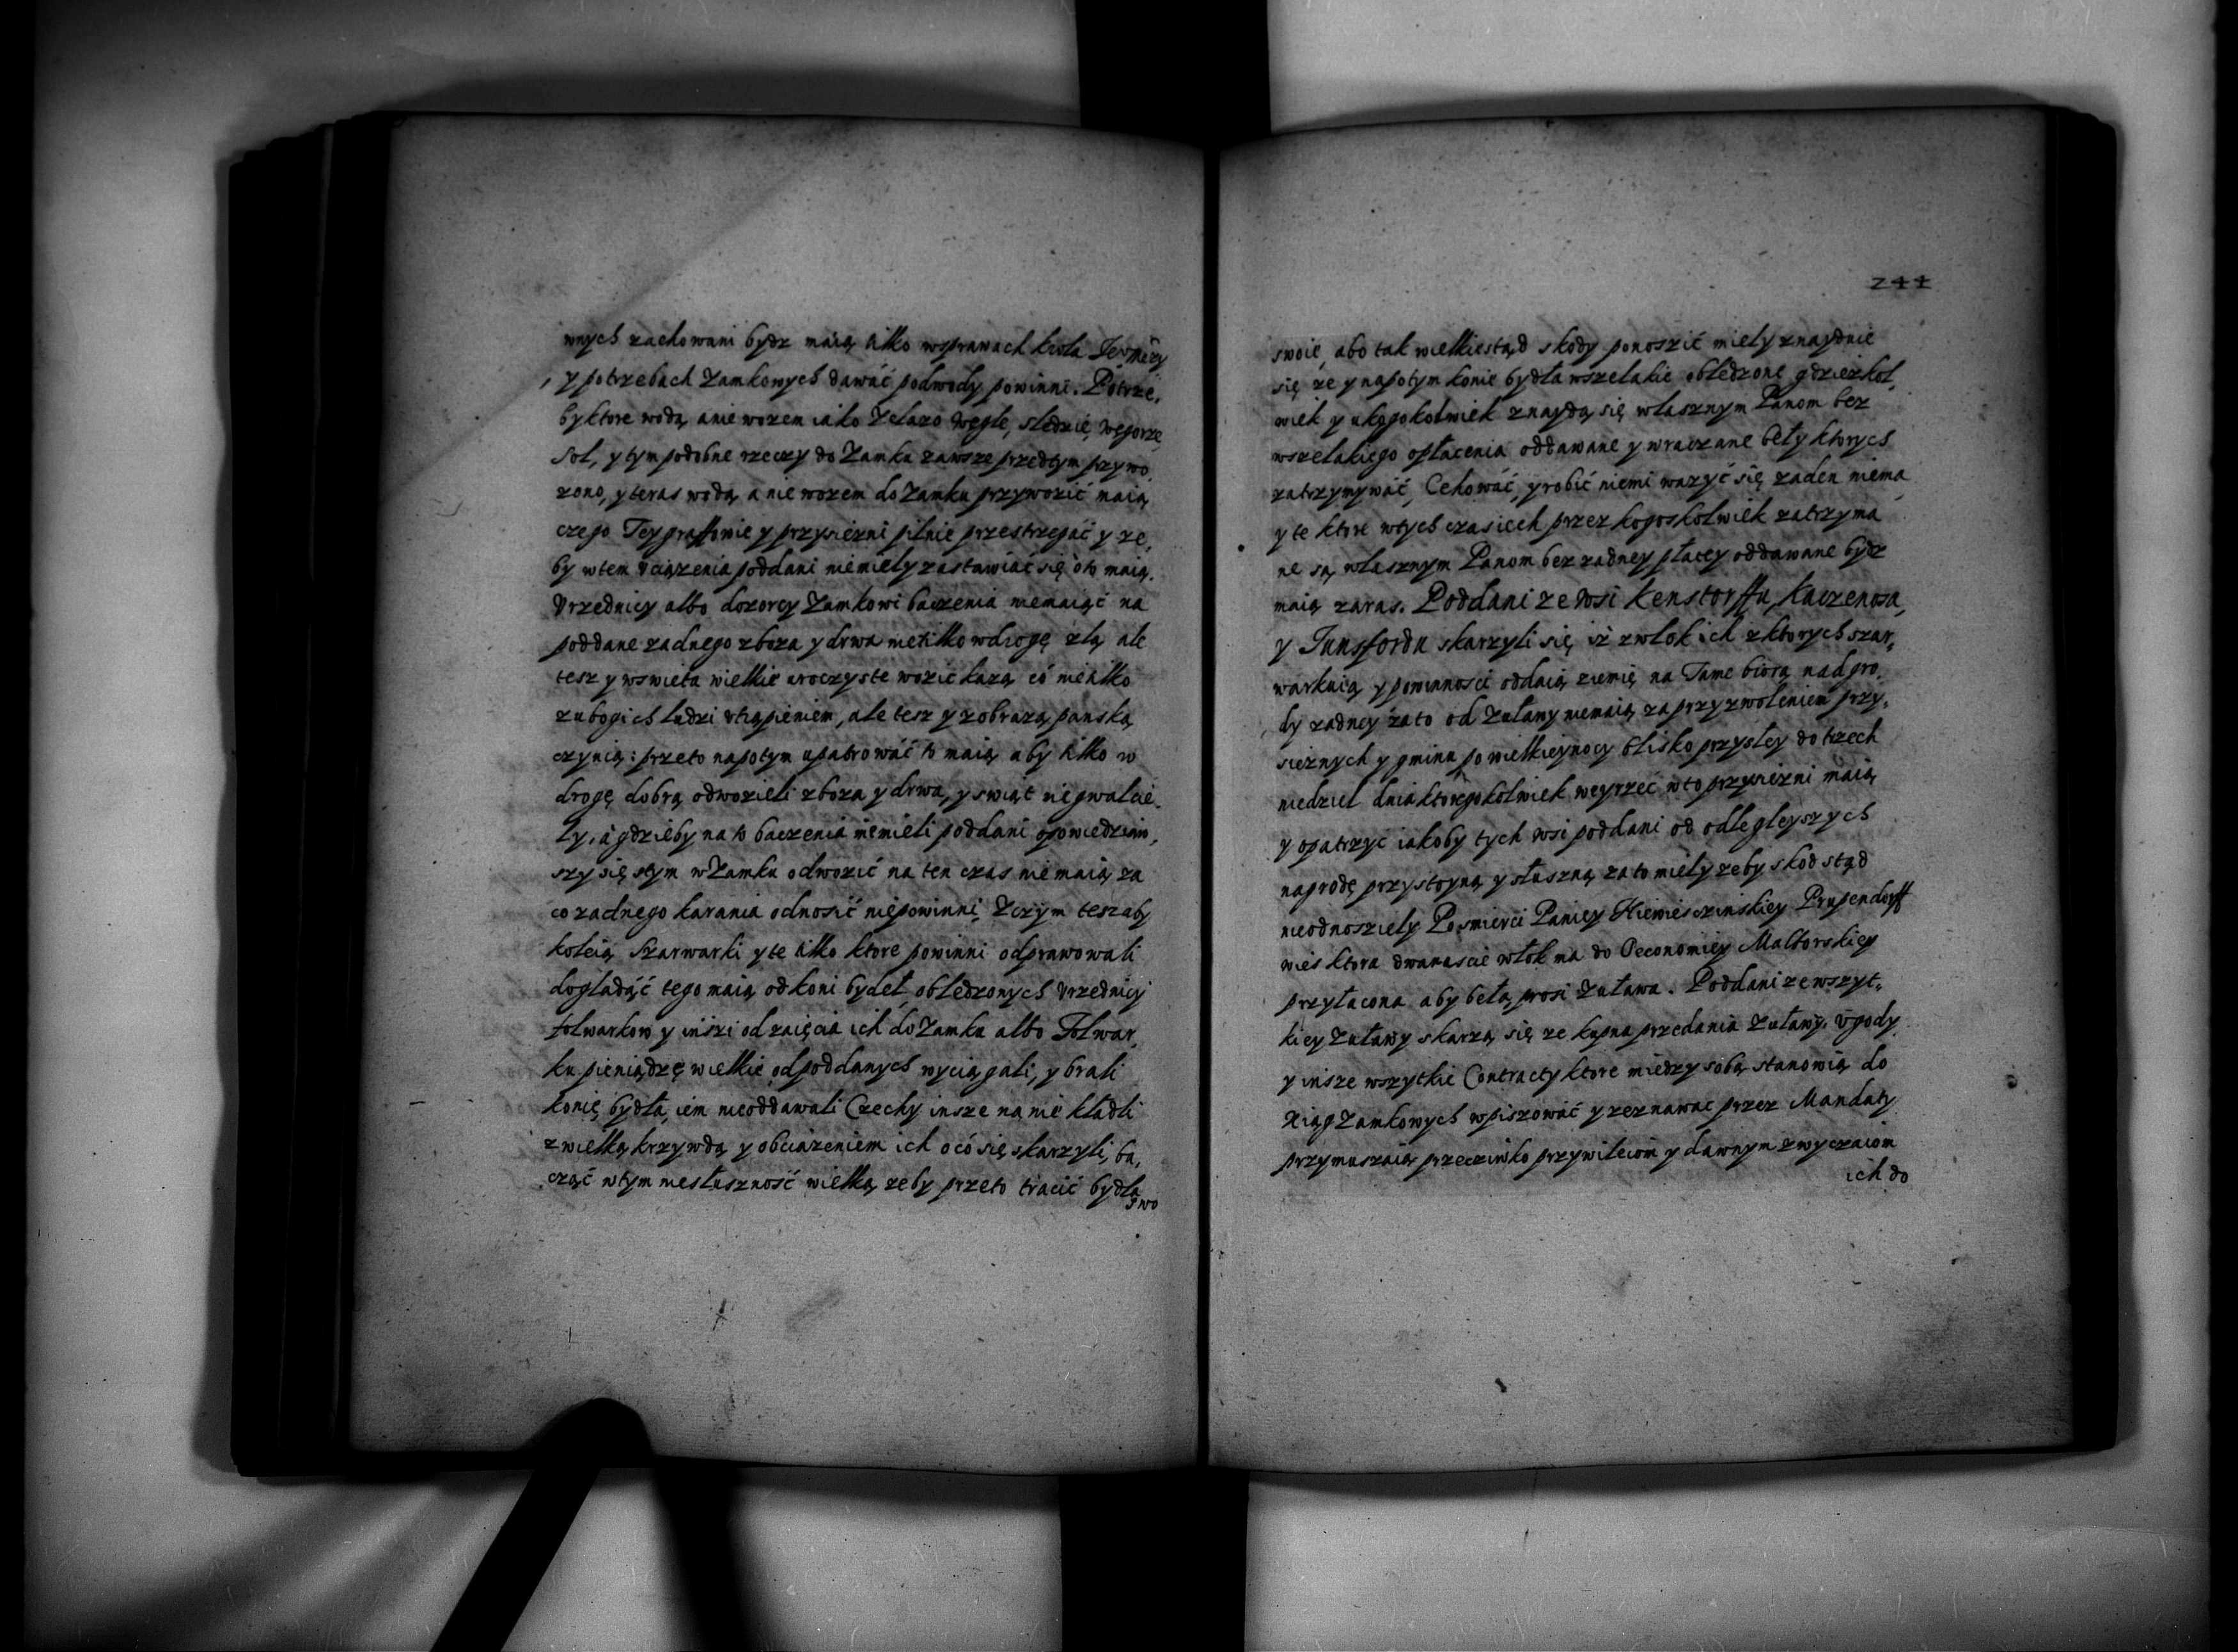 wnych zachowani bydz maią tilko wsprawach krola Je͡mści
y potrzebach Zamkowych dawáć podwody powinni. Potrze,
by ktore wodą anie wozem iako Zelazo Węgle, sledzie, węgorze
Sol, y tym podobne rzeczy do Zamku zawsze przedtym przywo
zono, y teras wodą a nie wozem do Zamku przywozić maią
czego Teygraffowie y przysiezni pilnie przestrzegáć y ze,
by wtem vciązenia poddani niemiely zastawiáć się o to maią.
Vrzednicy albo dozorcy Zamkowi baczenia niemaiąc na
poddane zadnego zboza y drwa nietilko wdrogę złą ale
tesz y wswieta wielkie uroczyste wozić kazą co nietilko
zubogich ludzi vtrapieniem, ale tesz y zobrazą panską
czynią: przeto napotym upatrowáć to maią aby tilko w
drogę dobrą odwozieli zboza y drwa, y swiąt niegwalcie.
ly, a gdzieby na to baczenia niemieli poddani opowiedziaw,
szy się stym w Zamku odwozić na ten czas niemaią za
co zadnego karania odnosić niepowinni, Zczym tesz aby
koleią Szarwarki y te tilko ktore powinni odprawowali
dogladáć tego maią od koni bydeł obłedzonych Vrzednicy
folwarkow y inszi od zaięcia ich do Zamku albo Folwar,
ku pieniądzę wielkie od poddanych wyciągali, y brali
konię bydła, iem nieoddawali Czechy insze na nie kładli
z wielką krzywdą y obciązeniem ich o co się skarzyli, ba,
cząć wtym niesłusznosć wielką zeby przeto tracić bydła
swo
244
swoie, abo tak wielkie stąd skody ponoszić miely znaydnie
się ze y napotym konie bydła wszelakie obłedzone gdzieżkol,
wiek y ukogokolwiek znaydą się własznym Panom bez
wszelakiego opłacenia oddawane y wraczane były ktorych
zatrzymywáć, Cehowáć, y robić niemi wazyć się zaden niema
y te ktore wtych czasiech przez kogoskolwiek zatrzyma
ne są, własznym Panom bez zadney płacey oddawane bydz
maią zaras. Poddani ze wsi Kenstorffu, Kaczenosa,
y Junsfordu skarzyli się iż zwłok ich zktorych szar,
warkuią y powinnosci oddaią ziemię na Tame biorą nadgro,
dy zadney za to od Zuławy niemaią za przyzwoleniem przy,
sieznych y gminu po wielkieynocy blisko przysłey do trzech
niedziel dnia ktoregokolwiek weyrzeć w to przysiezni maią
y opatrzyć iakoby tych wsi poddani od odlegleyszych
nagrodę przystoyną y słuszną za to miely zeby skod stąd
nieodnosziely Po smierci Paniey Niewiesczinskiey Prupendorff
wies ktora dwanascie włok ma do Oeconomiey Malborskiey
przyłacona aby beła, prosi Zuława. Poddani ze wszyt,
kiey Zuławy skarzą się ze kupna przedania Zuławy. Vgody
y insze wszytkie Contracty ktore miedzy sobą stanowią do
Xiąg Zamkowych wpiszowáć y zeznawac przez Mandaty
przymuszaią przeciwko przywileiom y dawnym zwyczaiom
ich do